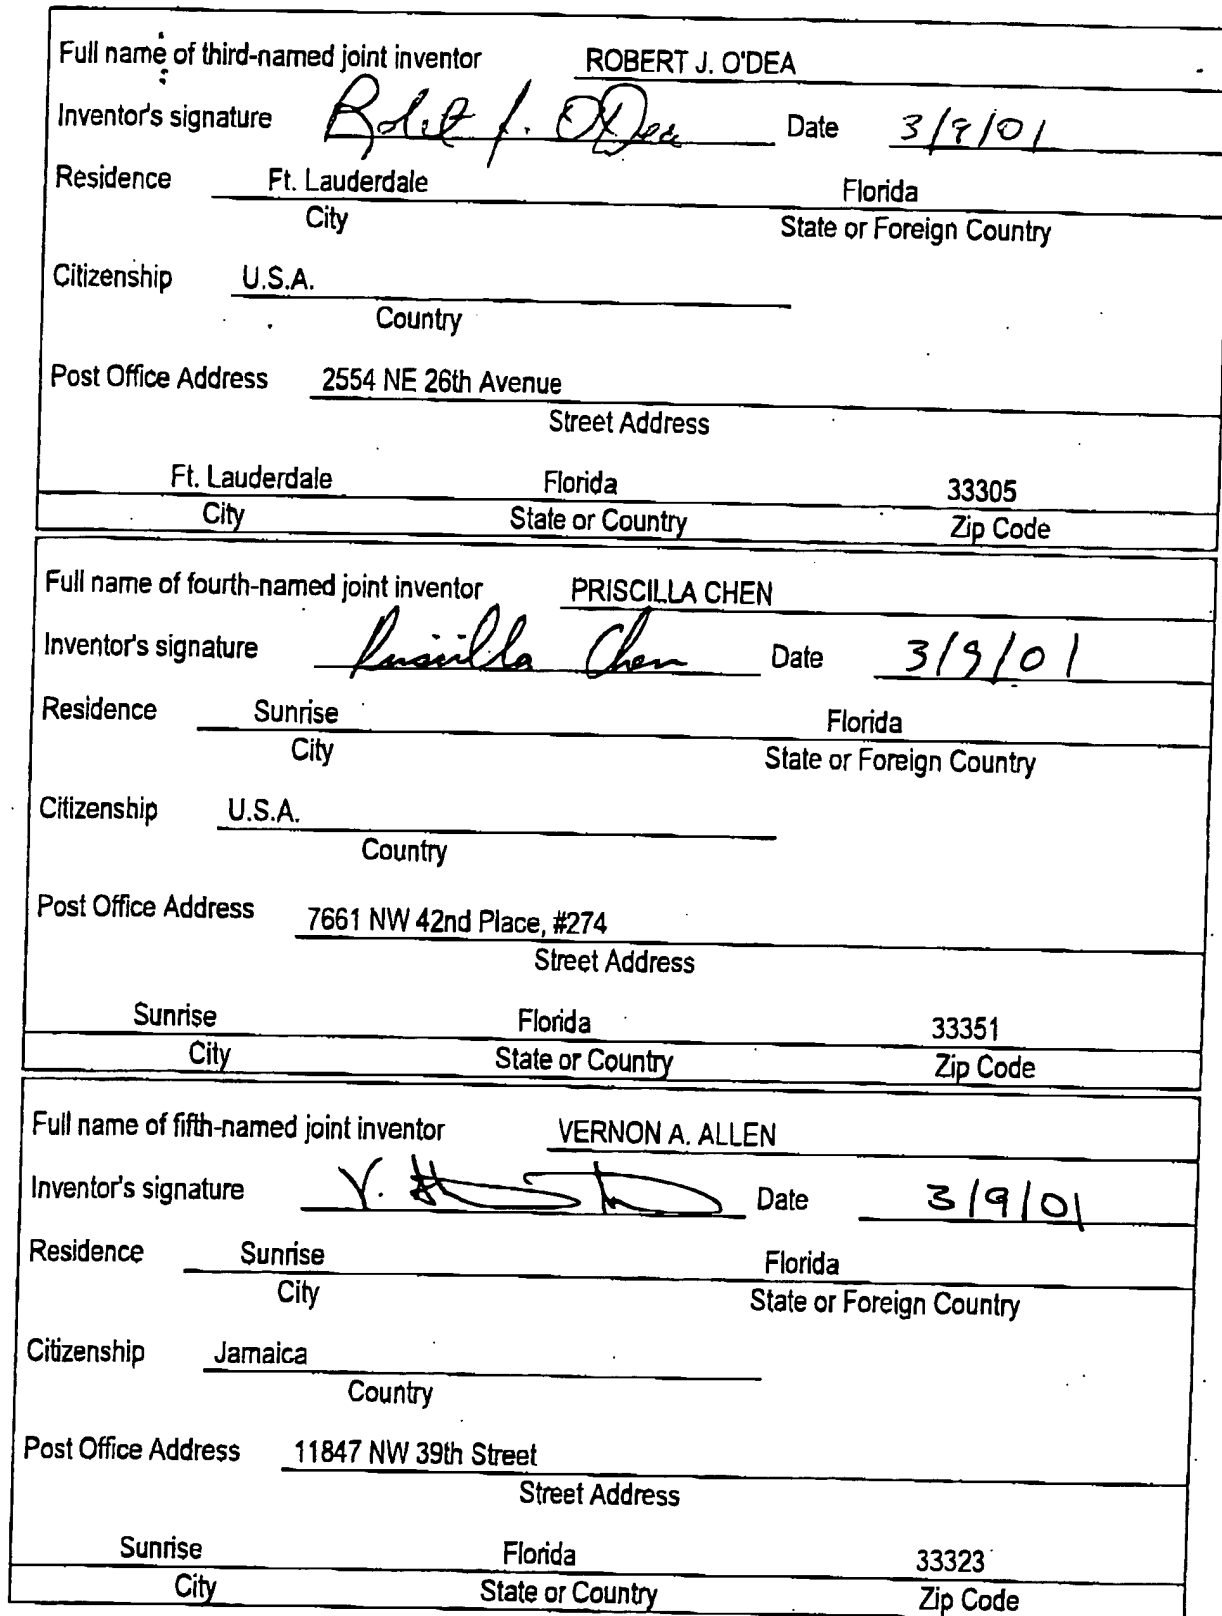 Full name of third-named joint inventor ROBERT J. O'DEA
Inventor's signature Robert J. O'Dea Date 3/9/01
Residence Ft. Lauderdale Florida
City State or Foreign Country
Citizenship U.S.A.
Country
Post Office Address 2554 NE 26th Avenue
Street Address
Ft. Lauderdale Florida 33305
City State or Country Zip Code
Full name of fourth-named joint inventor PRISCILLA CHEN
Inventor's signature Priscilla Chen Date 3/9/01
Residence Sunrise Florida
City State or Foreign Country
Citizenship U.S.A.
Country
Post Office Address 7661 NW 42nd Place, #274
Street Address
Sunrise Florida 33351
City State or Country Zip Code
Full name of fifth-named joint inventor VERNON A. ALLEN
Inventor's signature V. Date 3/9/01
Residence Sunrise Florida
City State or Foreign Country
Citizenship Jamaica
Country
Post Office Address 11847 NW 39th Street
Street Address
Sunrise Florida 33323
City State or Country Zip Code